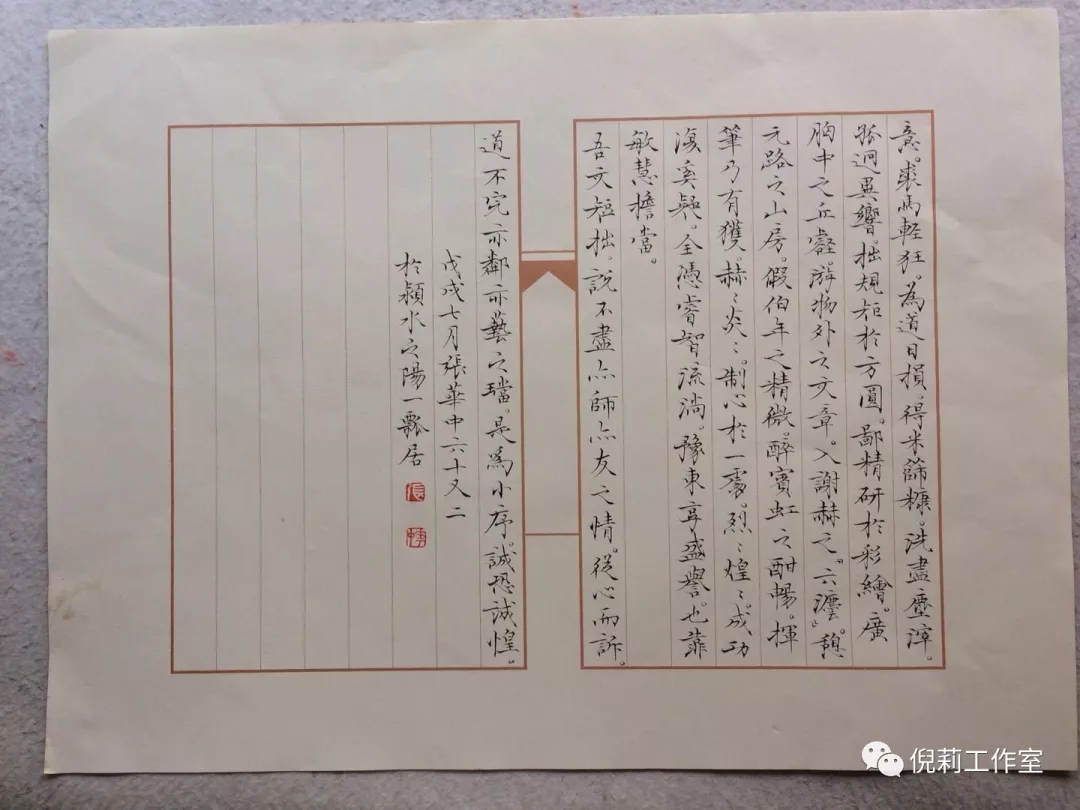 意。裘馬輕狂。為道日損。得米篩糠。洗盡塵滓。
逈異響。拙規矩於方圓。鄙精研於彩繪。廣
胸中之丘壑。游物外之文章。入謝赫之“六灋”。憩
元路之山房。假伯年之精微。醉賓虹之酣暢。揮
筆乃有獲。赫〻炎〻。制心於一處。烈〻煌〻。成功
復奚疑。全憑睿智流淌。豫東享盛譽。也靠
敏慧擔當。
吾文短拙。說不盡亦師亦友之情。從心而訴。
道不完亦鄰亦藝之璫。是為小序。誠恐誠惶。
戊戌七月張華中六十又二
於潁水之陽一瓢居
倪莉工作室